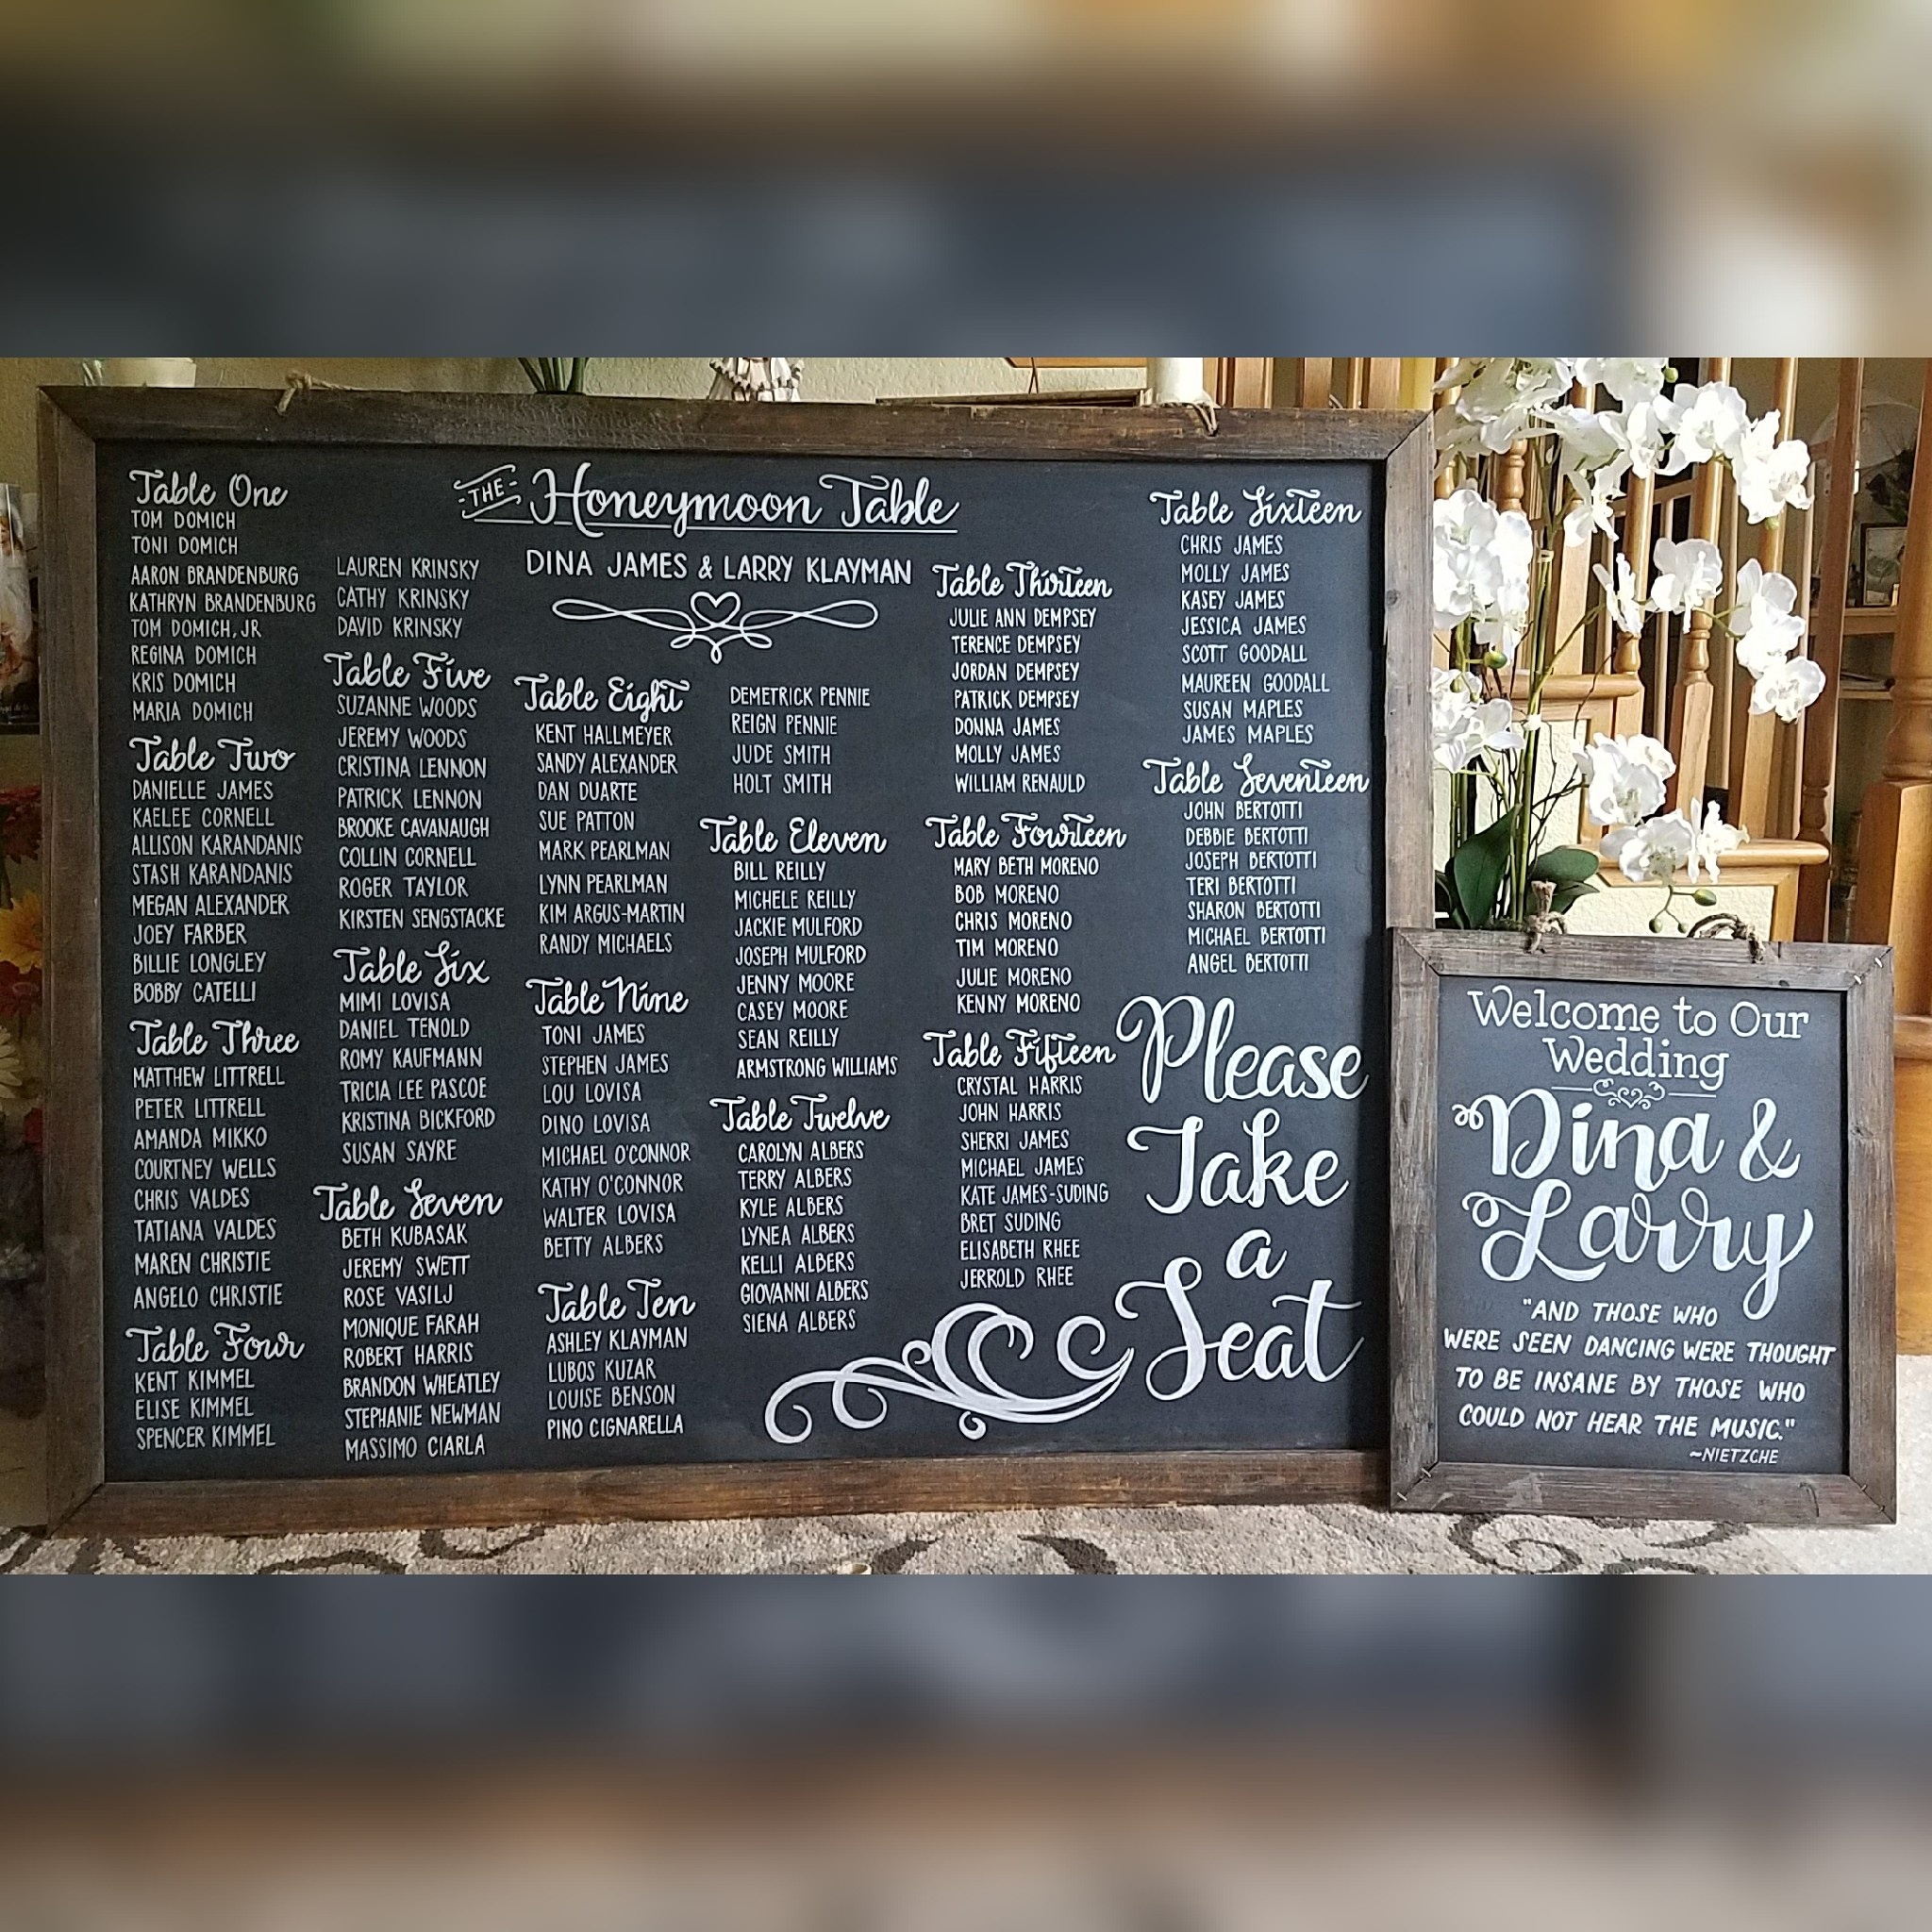 Table One
TOM DOMICH
TONI DOMICH
AARON BRANDENBURG
KATHRYN BRANDENBURG
TOM DOMICH, JR
REGINA DOMICH
KRIS DOMICH
MARIA DOMICH
Table Two
DANIELLE JAMES
KAELEE CORNELL
ALLISON KARANDANIS
STASH KARANDANIS
MEGAN ALEXANDER
JOEY FARBER
BILLIE LONGLEY
BOBBY CATELLI
Table Three
MATTHEW LITTRELL
PETER LITTRELL
AMANDA MIKKO
COURTNEY WELLS
CHRIS VALDES
TATIANA VALDES
MAREN CHRISTIE
ANGELO CHRISTIE
Table Four
KENT KIMMEL
ELISE KIMMEL
SPENCER KIMMEL
LAUREN KRINSKY
CATHY KRINSKY
DAVID KRINSKY
Table Five
SUZANNE WOODS
JEREMY WOODS
CRISTINA LENNON
PATRICK LENNON
BROOKE CAVANAUGH
COLLIN CORNELL
ROGER TAYLOR
KIRSTEN SENGSTACKE
Table Six
MIMI LOVISA
DANIEL TENOLD
ROMY KAUFMANN
TRICIA LEE PASCOE
KRISTINA BICKFORD
SUSAN SAYRE
Table Seven
BETH KUBASAK
JEREMY SWETT
ROSE VASILJ
MONIQUE FARAH
ROBERT HARRIS
BRANDON WHEATLEY
STEPHANIE NEWMAN
MASSIMO CIARLA
THE Honeymoon Table
DINA JAMES & LARRY KLAYMAN
Table Eight
KENT HALLMEYER
SANDY ALEXANDER
DAN DUARTE
SUE PATTON
MARK PEARLMAN
LYNN PEARLMAN
KIM ARGUS-MARTIN
RANDY MICHAELS
Table Nine
TONI JAMES
STEPHEN JAMES
LOU LOVISA
DINO LOVISA
MICHAEL O'CONNOR
KATHY O'CONNOR
WALTER LOVISA
BETTY ALBERS
Table Ten
ASHLEY KLAYMAN
LUBOS KUZAR
LOUISE BENSON
PINO CIGNARELLA
DEMETRICK PENNIE
REIGN PENNIE
JUDE SMITH
HOLT SMITH
Table Eleven
BILL REILLY
MICHELE REILLY
JACKIE MULFORD
JOSEPH MULFORD
JENNY MOORE
CASEY MOORE
SEAN REILLY
ARMSTRONG WILLIAMS
Table Twelve
CAROLYN ALBERS
TERRY ALBERS
KYLE ALBERS
LYNEA ALBERS
KELLI ALBERS
GIOVANNI ALBERS
SIENA ALBERS
Table Thirteen
JULIE ANN DEMPSEY
TERENCE DEMPSEY
JORDAN DEMPSEY
PATRICK DEMPSEY
DONNA JAMES
MOLLY JAMES
WILLIAM RENAULD
Table Fourteen
MARY BETH MORENO
BOB MORENO
CHRIS MORENO
TIM MORENO
JULIE MORENO
KENNY MORENO
Table Fifteen
CRYSTAL HARRIS
JOHN HARRIS
SHERRI JAMES
MICHAEL JAMES
KATE JAMES-SUDING
BRET SUDING
ELISABETH RHEE
JERROLD RHEE
Table Sixteen
CHRIS JAMES
MOLLY JAMES
KASEY JAMES
JESSICA JAMES
SCOTT GOODALL
MAUREEN GOODALL
SUSAN MAPLES
JAMES MAPLES
Table Seventeen
JOHN BERTOTTI
DEBBIE BERTOTTI
JOSEPH BERTOTTI
TERI BERTOTTI
SHARON BERTOTTI
MICHAEL BERTOTTI
ANGEL BERTOTTI
Please
Take
a
Seat
Welcome to Our
Wedding
Dina &
Larry
"AND THOSE WHO
WERE SEEN DANCING WERE THOUGHT
TO BE INSANE BY THOSE WHO
COULD NOT HEAR THE MUSIC."
~NIETZCHE